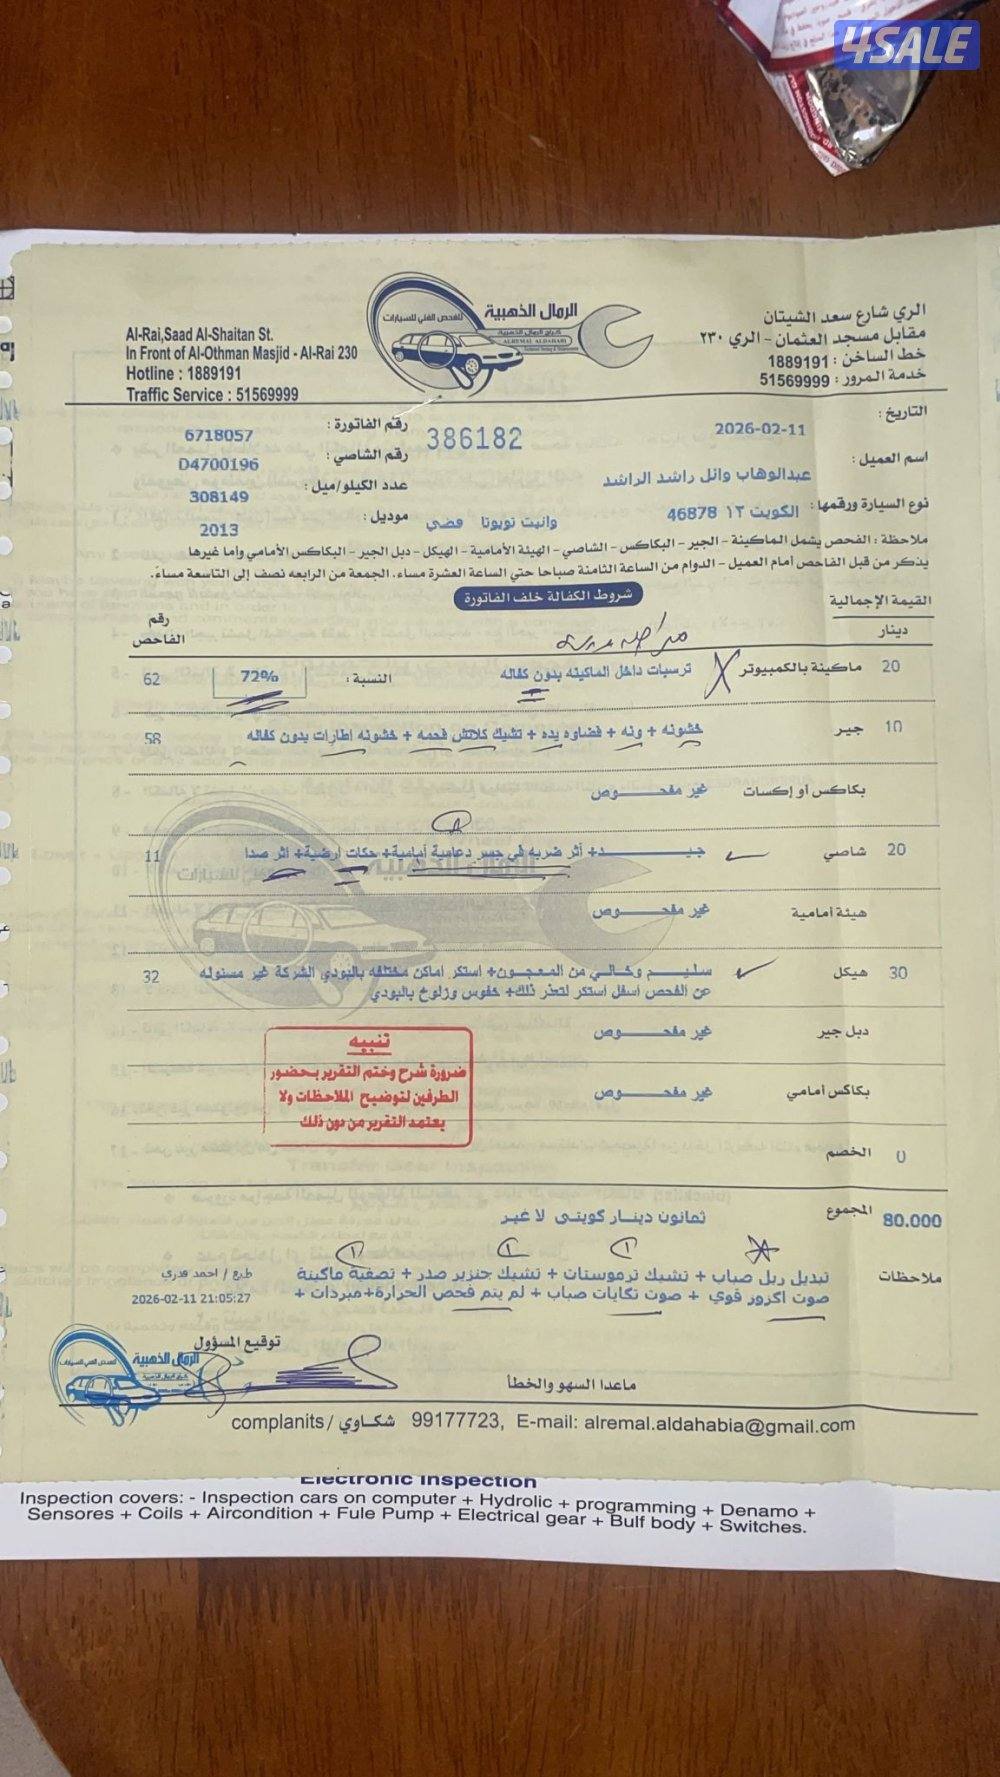 4SALE
الرمال الذهبية
للفحص الفني للسيارات
كراج الرمال الذهبية
ALREMAL ALDAHABI
Al-Rai,Saad Al-Shaitan St.
In Front of Al-Othman Masjid - Al-Rai 230
Hotline : 1889191
Traffic Service : 51569999
الري شارع سعد الشيتان
مقابل مسجد العثمان - الري ٢٣٠
خط الساخن : 1889191
خدمة المرور : 51569999
التاريخ : 2026-02-11
386182
رقم الفاتورة : 6718057
اسم العميل : عبدالوهاب وائل راشد الراشد
رقم الشاصي : D4700196
عدد الكيلو/ميل : 308149
نوع السيارة ورقمها : الكويت ١٢ 46878 وانيت تويوتا فضي
موديل : 2013
ملاحظة : الفحص يشمل الماكينة - الجير - البكاكس - الشاصي - الهيئة الأمامية - الهيكل - دبل الجير - البكاكس الأمامي وأما غيرها
يذكر من قبل الفاحص أمام العميل - الدوام من الساعة الثامنة صباحا حتي الساعة العشرة مساء. الجمعة من الرابعه نصف إلى التاسعة مساءً.
شروط الكفالة خلف الفاتورة
القيمة الإجمالية
دينار
رقم الفاحص
20 ماكينة بالكمبيوتر ترسبات داخل الماكينه بدون كفاله النسبة : 72% 62
10 جير خشونه + ونه + فضاوه يده + تشيك كلاتش فحمه + خشونه اطارات بدون كفاله 58
بكاكس أو إكسات غير مفحوص
20 شاصي جيد+ أثر ضربه في جسر دعامية أمامية+ حكات ارضية+ اثر صدا 11
هيئة أمامية غير مفحوص
30 هيكل سليم وخالي من المعجون+ استكر اماكن مختلفه بالبودي الشركة غير مسئوله 32
عن الفحص أسفل استكر لتعذر ذلك+ خفوس وزلوخ بالبودي
دبل جير غير مفحوص
بكاكس أمامي غير مفحوص
تنبيه
ضرورة شرح وختم التقرير بحضور
الطرفين لتوضيح الملاحظات ولا
يعتمد التقرير من دون ذلك
الخصم 0
المجموع 80.000 ثمانون دينار كويتى لا غير
ملاحظات تبديل ربل صباب + تشيك ترموستات + تشيك جنزير صدر + تصفية ماكينة
صوت اكزوز قوي + صوت تكايات صباب + لم يتم فحص الحرارة+مبردات +
طبع / احمد فدري
2026-02-11 21:05:27
توقيع المسؤول
الرمال الذهبية
ماعدا السهو والخطأ
complanits/ شكاوي 99177723, E-mail: alremal.aldahabia@gmail.com
Electronic Inspection
Inspection covers: - Inspection cars on computer + Hydrolic + programming + Denamo +
Sensores + Coils + Aircondition + Fule Pump + Electrical gear + Bulf body + Switches.